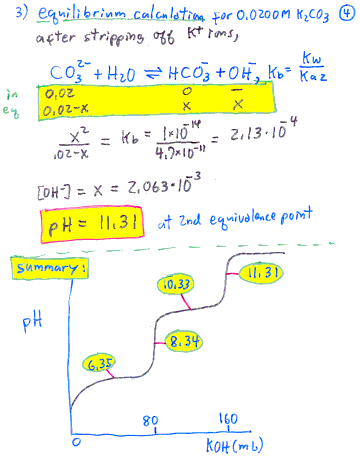 3) equilibrium calculation for 0.0200M K₂CO₃ ④
after stripping off K⁺ ions,
CO₃²⁻ + H₂O ⇌ HCO₃⁻ + OH⁻, Kb = Kw/Ka2
in 0.02 0 –
eq 0.02-x x x
x²/.02-x = Kb = 1×10⁻¹⁴/4.7×10⁻¹¹ = 2.13·10⁻⁴
[OH⁻] = x = 2.063·10⁻³
pH = 11.31 at 2nd equivalence point
Summary:
10.33
11.31
pH
8.34
6.35
0 80 160
KOH (mL)